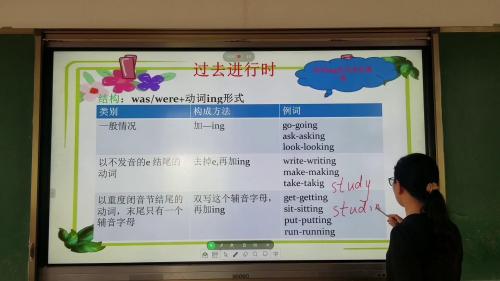 过去进行时
结构：was/were+动词ing形式
类别 构成方法 例词
一般情况 加—ing go-going
ask-asking
look-looking
以不发音的e 结尾的动词 去掉e,再加ing write-writing
make-making
take-takig
study
以重度闭音节结尾的动词，末尾只有一个辅音字母 双写这个辅音字母，再加ing get-getting
sit-sitting
put-putting
run-running